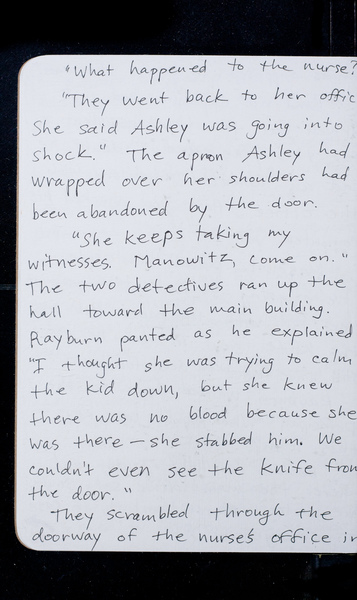 "What happened to the nurse?
"They went back to her offic
She said Ashley was going into
shock." The apron Ashley had
wrapped over her shoulders had
been abandoned by the door.
"She keeps taking my
witnesses. Manowitz, come on."
The two detectives ran up the
hall toward the main building.
Rayburn panted as he explained
"I thought she was trying to calm
the kid down, but she knew
there was no blood because she
was there — she stabbed him. We
couldn't even see the knife from
the door."
They scrambled through the
doorway of the nurse's office in